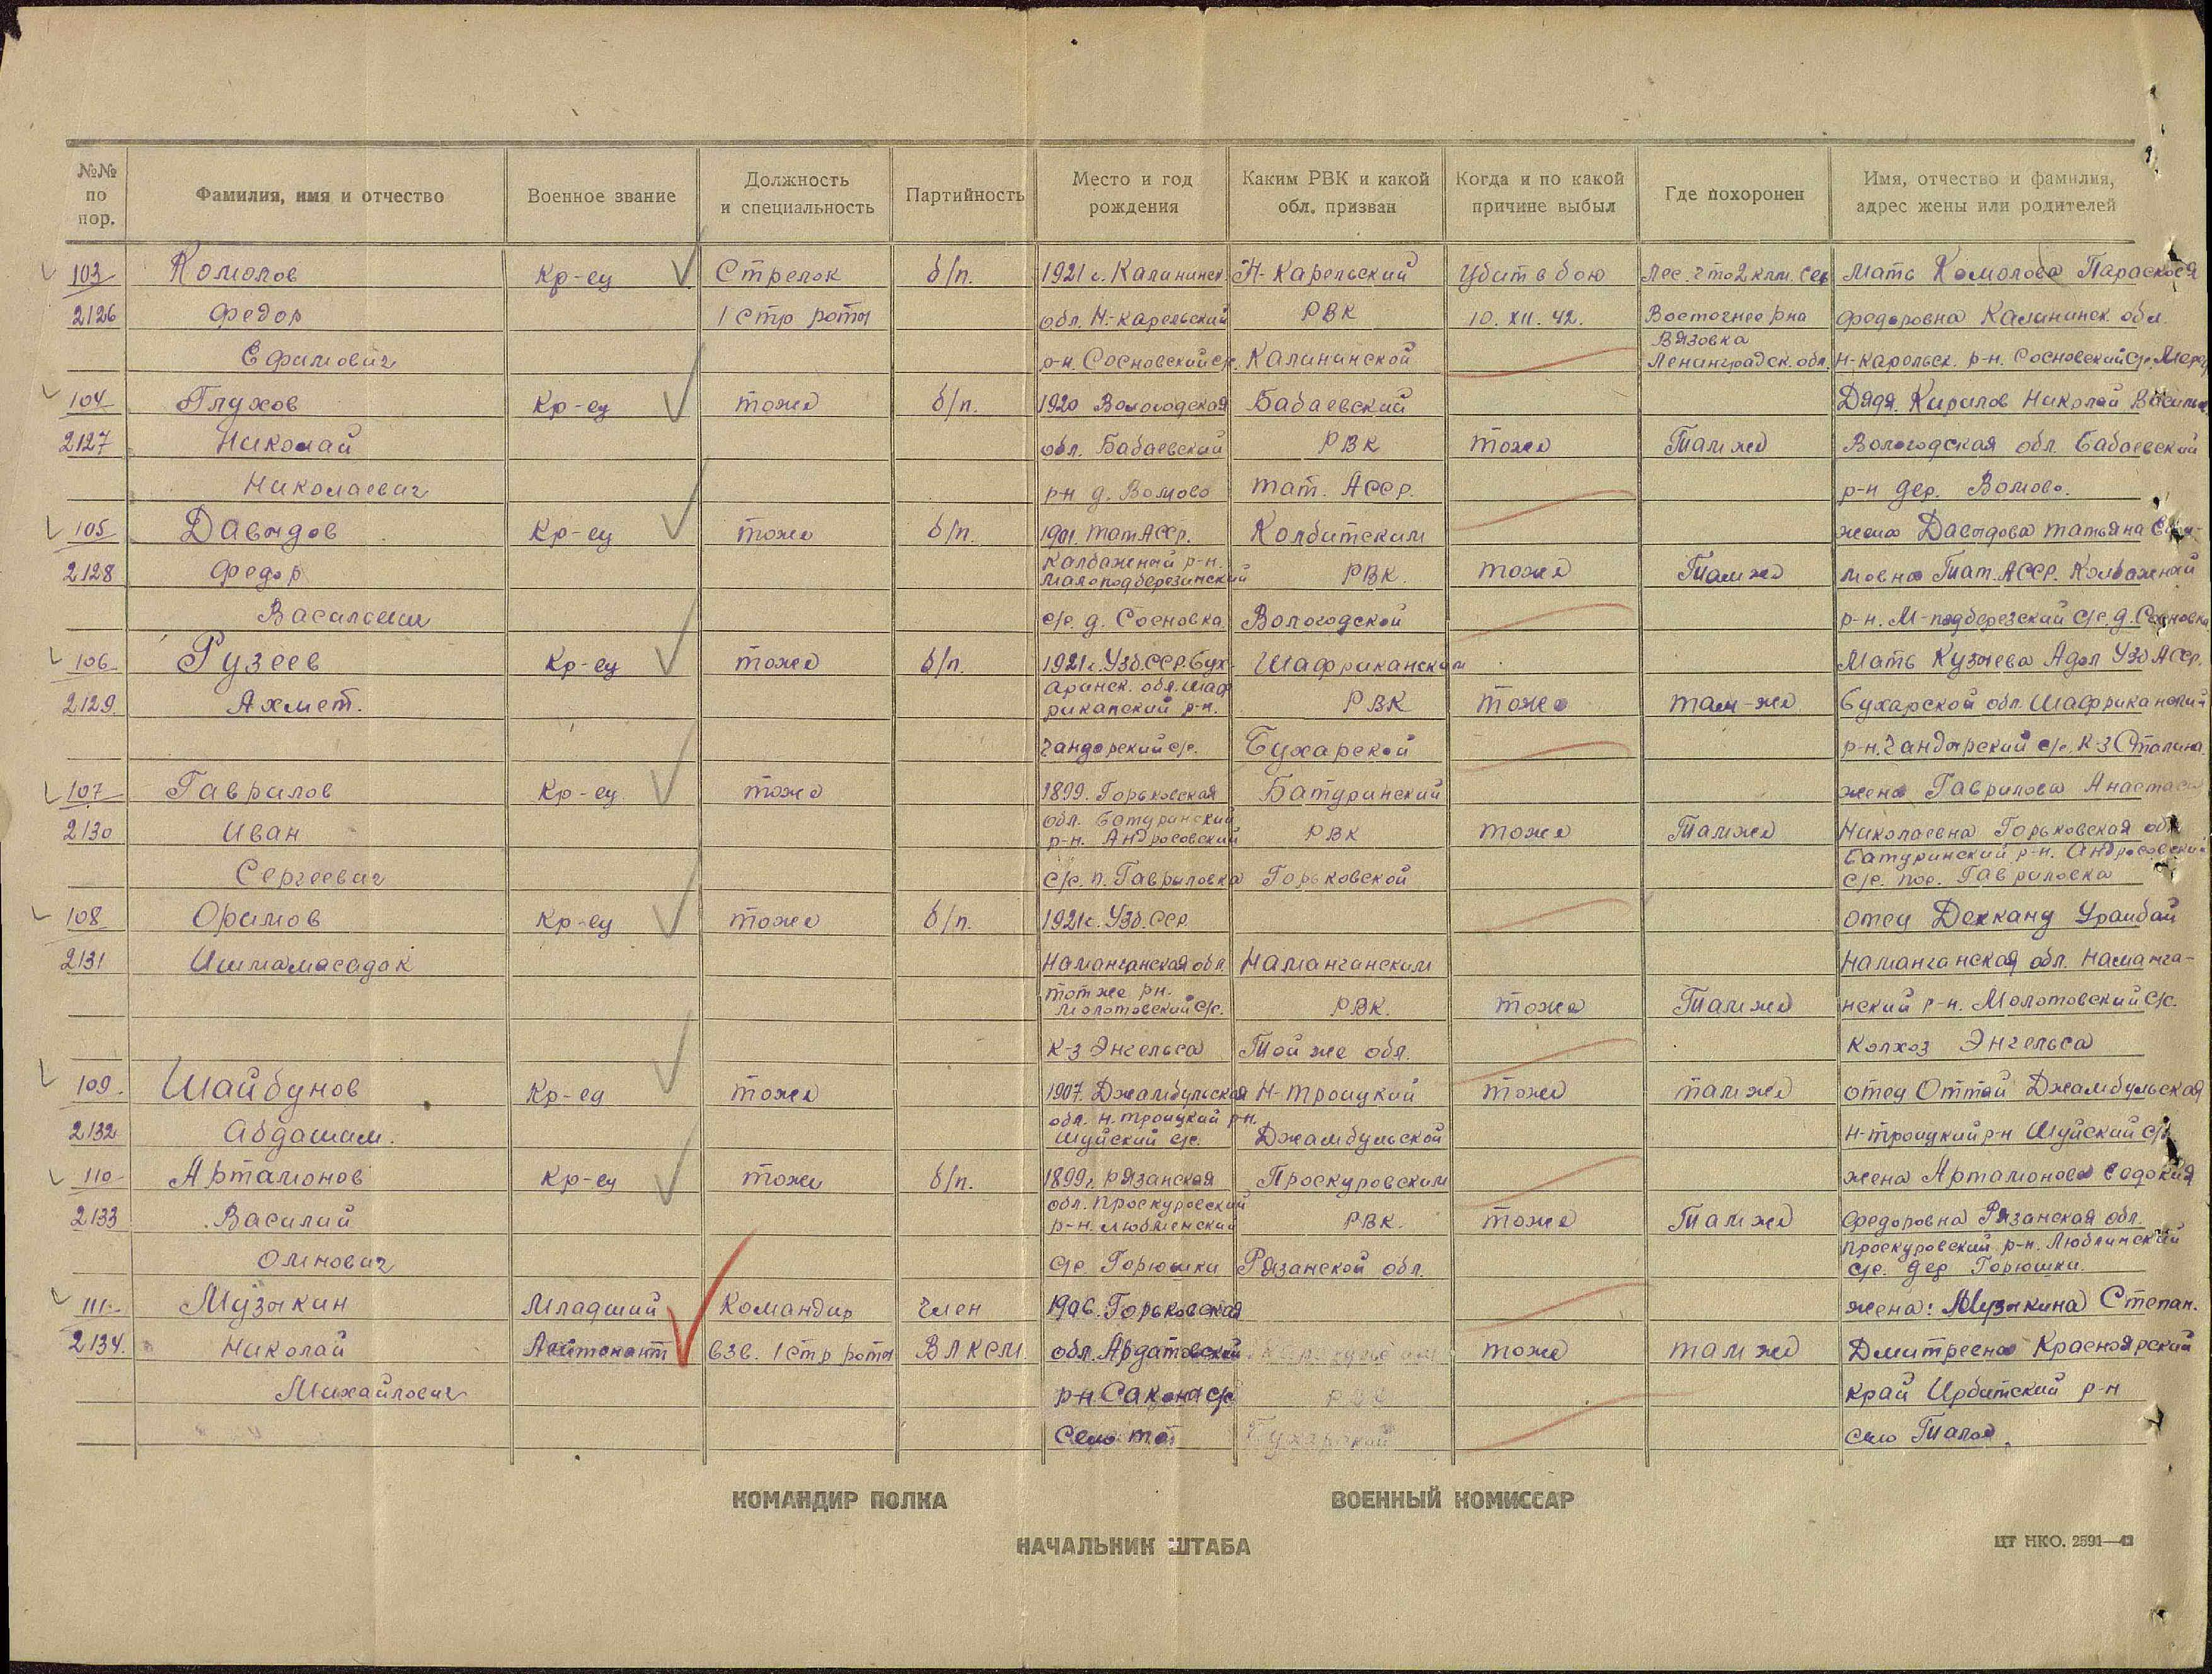 №№ по пор. Фамилия, имя и отчество Военное звание Должность и специальность Партийность Место и год рождения Каким РВК и какой обл. призван Когда и по какой причине выбыл Где похоронен Имя, отчество и фамилия, адрес жены или родителей
103 Комолов Кр-ец Стрелок б/п. 1921 г. Калининск. Н-Карельский Убит в бою Лес. что 2 клм. Сев Мать Комолова Парасковя
2126 Федор 1 стр роты обл. Н-Карельский РВК 10.XII.42. Восточнее рна Федоровна Калининск. обл.
Вязовка
Ефимович р-н. Сосновский с/с. Калининской Ленинградск. обл. Н-Карельск. р-н. Сосновский с/с.
104 Глухов Кр-ец тоже б/п. 1920 Вологодская Бабаевский Дядя. Кирилов Николай
2127 Николай обл. Бабаевский РВК тоже Там же Вологодская обл. Бабаевский
Николаевич р-н д. Волово Тат. АССР. р-н дер. Волово.
105 Давыдов Кр-ец тоже б/п. 1901. Тат АССР. Колбитским жена Давыдова Татьяна
Калбаженый р-н.
2128 Федор Малоподберезинский РВК. тоже Там же мовна Тат. АССР. Колбаженый
Василович с/с. д. Сосновка Вологодской р-н. М-подберезский с/с. д. Сосновка
106 Рузеев Кр-ец тоже б/п. 1921 г. Узб. ССР. Бух- Шафриканским Мать Кузыева Адол Узб АССР.
аринск. обл. Шаф
2129. Ахмет. риканский р-н. РВК тоже там-же Бухарской обл. Шафриканский
Чандорский с/с. Бухарской р-н. Чандырский с/с. К-З Сталина.
107 Гаврилов Кр-ец тоже 1899. Горьковская Батуринский жена Гаврилова
обл. Батуринский
2130 Иван р-н. Андросовский РВК тоже Там же Николаевна Горьковская обл
Батуринский р-н. Андросовский
Сергеевич с/с. п. Гавриловка Горьковской с/с. пос. Гавриловка
108 Оримов Кр-ец тоже б/п. 1921 г. Узб. ССР. отец Декканд Урамбай
2131 Ишмамасадак Наманганская обл. Наманганским Наманганская обл. Наманга-
тот же рн.
Молотовский с/с. РВК. тоже Там же нский р-н. Молотовский с/с.
К-з Энгельса Той же обл. колхоз Энгельса
109. Шайбунов Кр-ец тоже 1907. Джамбульская Н-Троицкий тоже там же отец Оттай Джамбульская
обл. Н. Троицкий р-н.
2132 Абдашим. Шуйский с/с. Джамбульской Н-Троицкий р-н Шуйский с/с
110 Артамонов Кр-ец тоже б/п. 1899г. Рязанская Проскуровским жена Артамонова Евдокия
обл. Проскуровский
2133 Василий р-н. Люблинский РВК. тоже Там же Федоровна Рязанская обл.
Проскуровский р-н. Люблинский
Олнович с/с. Горюшки Рязанской обл. с/с. дер Горюшки.
111. Музыкин Младший Командир Член 1906. Горьковская жена: Музыкина Степан.
2134. Николай Лейтенант взв. 1 стр роты ВЛКСМ обл. Ардатовский тоже там же Дмитреена Красноярский
Михайлович р-н. Сакона с/с РВК край Ирбитский р-н
Село тот Бухарской село Талое.
КОМАНДИР ПОЛКА ВОЕННЫЙ КОМИССАР
НАЧАЛЬНИК ШТАБА
ЦТ НКО. 2591—42